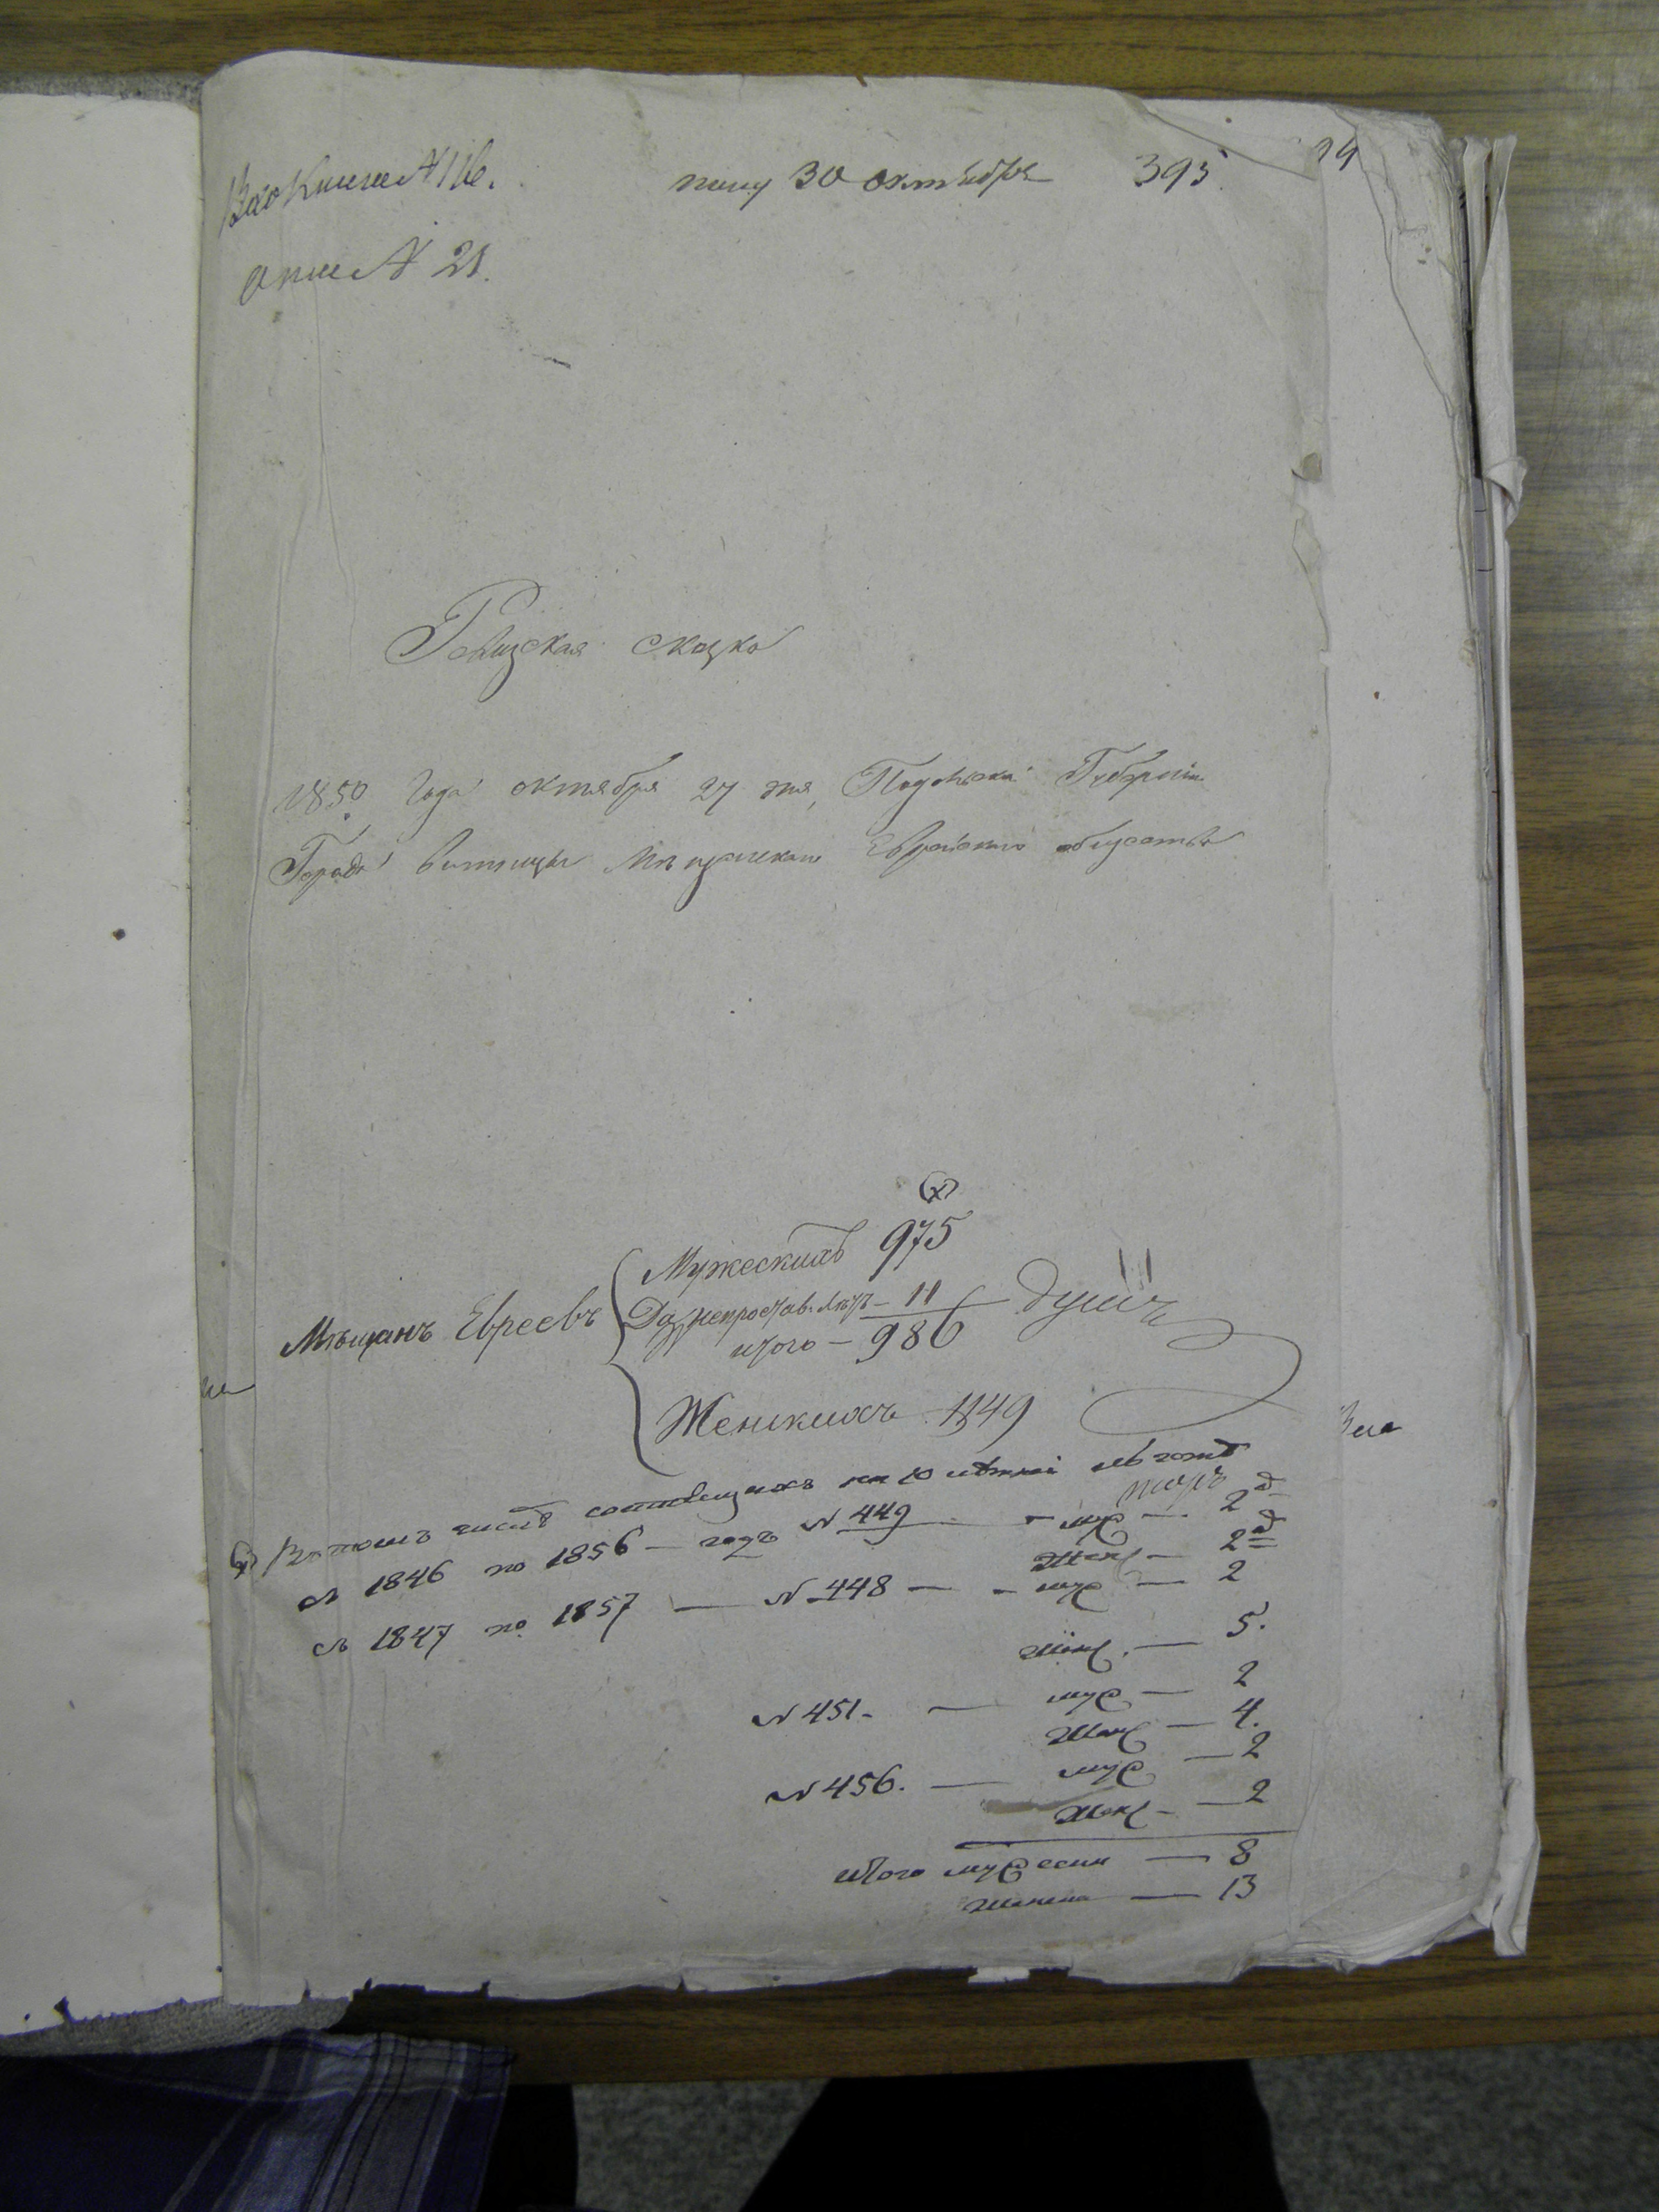 Книге № 116.
получ 30 октября 395.
описи № 21.
Ревизская сказка
1850 года октября 27 дня, Подольской Губернии
Города Винницы Мѣщанскаго Еврейскаго общества
(х)
Мужескихъ 975
Мѣщанъ Евреевъ — 11 душъ
итого — 986
Женскихъ 1149
(х) В томъ числѣ состоящихъ на 10 лѣтней льготѣ
съ 1846 по 1856 — годъ № 449 — муж — 2
жен — 2
съ 1847 по 1857 — № 448 — муж — 2
жен. — 5.
№ 451. — муж — 2
жен — 4.
№ 456. — муж — 2
жен — 2
итого мужески — 8
женска — 13